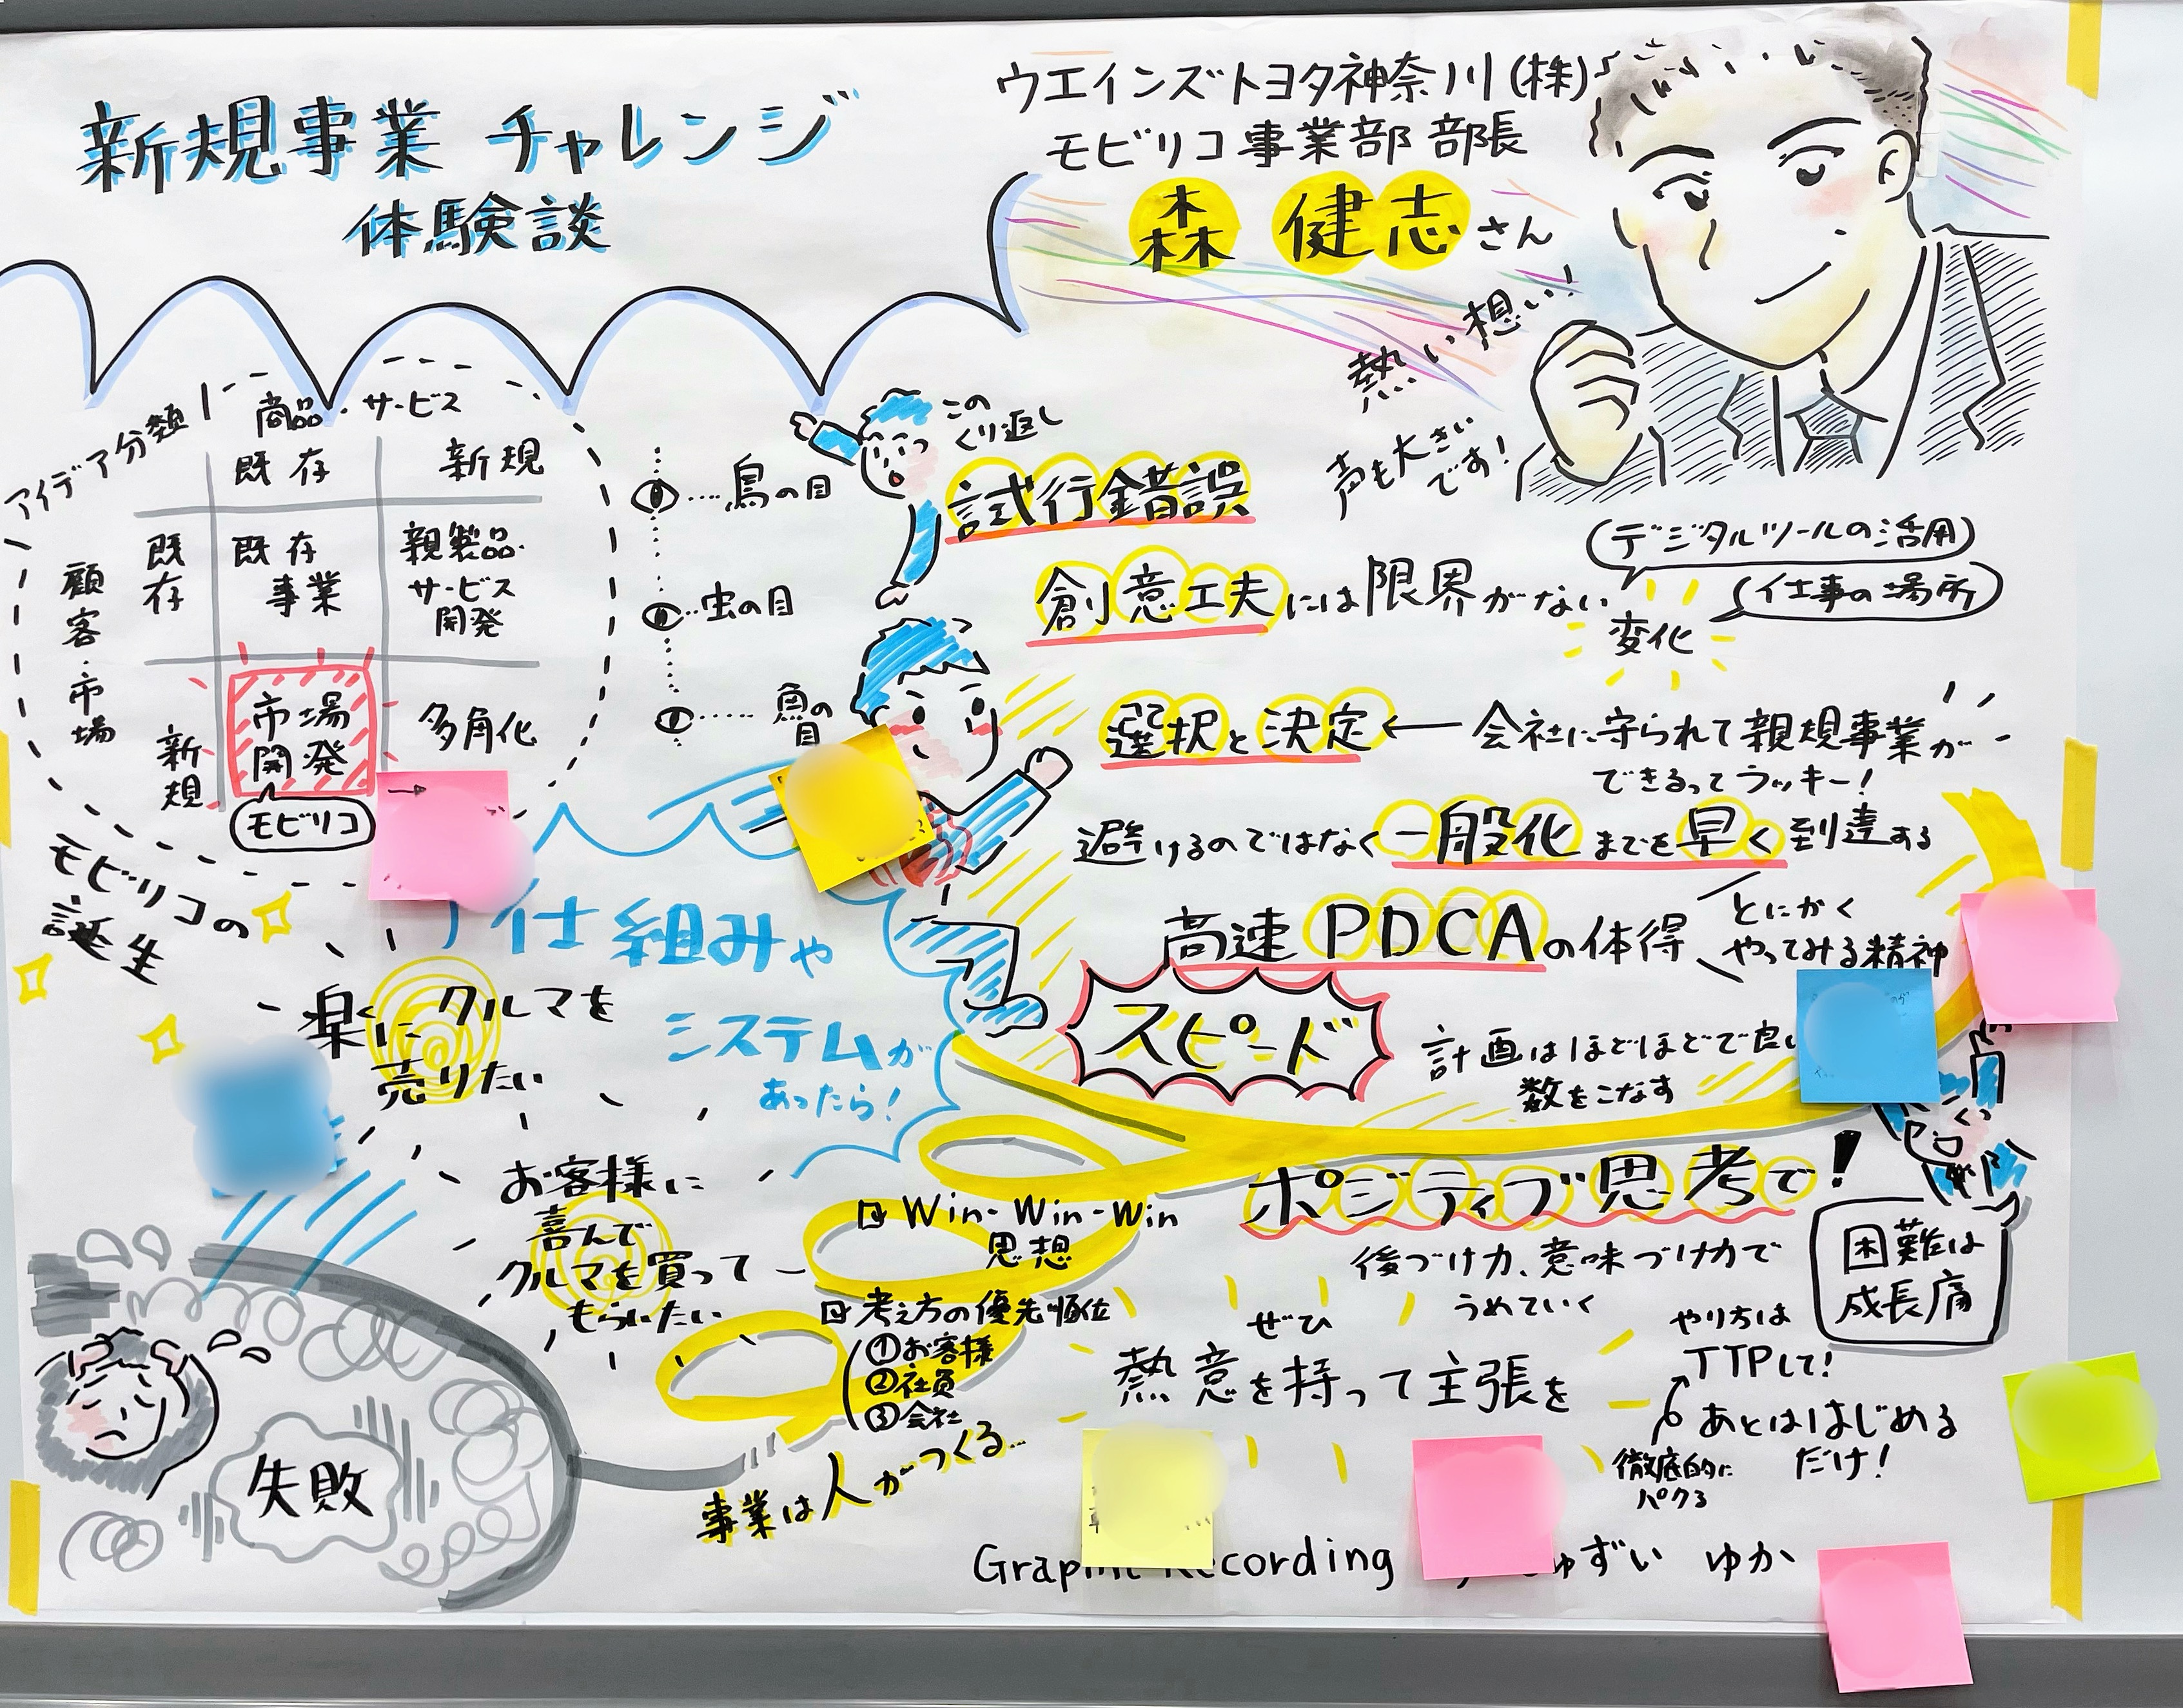 新規事業 チャレンジ
体験談
ウエインズトヨタ神奈川(株)
モビリコ事業部 部長
森 健志さん
熱い想い!
声も大きい
です!
アイデア分類
商品・サービス
既存
新規
顧客・市場
既存
既存
事業
親製品・
サービス
開発
新規
市場
開発
多角化
モビリコ
モビリコの
誕生
鳥の目
虫の目
魚の
目
この
くり返し
試行錯誤
創意工夫には限界がない
デジタルツールの活用
仕事の場所
変化
選択と決定←会社に守られて親規事業が
できるってラッキー!
避けるのではなく一般化までを早く到達する
高速PDCAの体得
とにかく
やってみる精神
スピード
計画はほどほどで良い
数をこなす
仕組みや
システムが
あったら!
楽に
クルマを
売りたい
お客様に
喜んで
クルマを買って
もらいたい
Win-Win-Win
思想
考え方の優先順位
①お客様
②社員
③会社
事業は人がつくる…
失敗
ポジティブ思考で!
後づけ力、意味づけ力で
うめていく
困難は
成長痛
ぜひ
熱意を持って主張を
やり方は
TTPして!
あとははじめる
だけ!
徹底的に
パクる
Graphic Recording
ゅずい ゆか